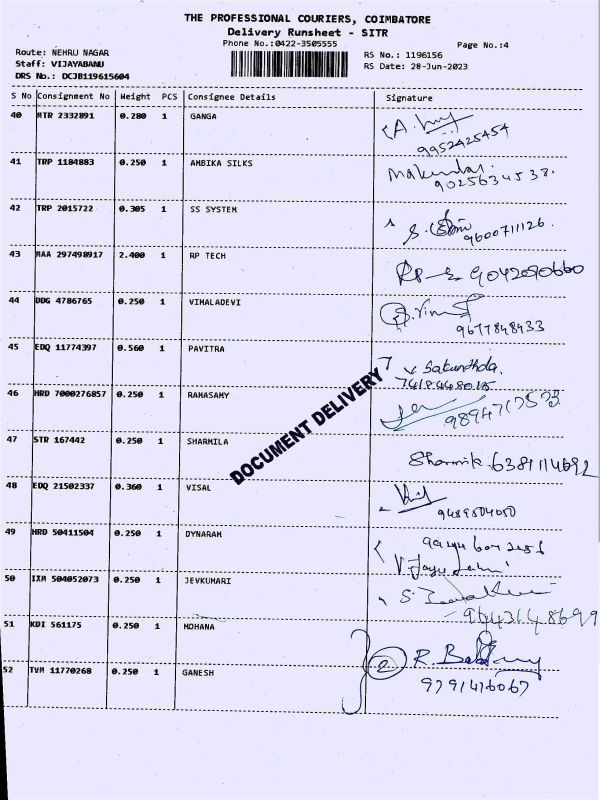 THE PROFESSIONAL COURIERS, COIMBATORE
Delivery Runsheet - SITR
Phone No.:0422-3505555
Page No.:4
Route: NEHRU NAGAR
RS No.: 1196156
Staff: VIJAYABANU
RS Date: 28-Jun-2023
DRS No.: DCJB119615604
S No Consignment No Weight PCS Consignee Details Signature
40 MTR 2332891 0.280 1 GANGA
9952425454
41 TRP 1184883 0.250 1 AMBIKA SILKS
9025634538.
42 TRP 2015722 0.305 1 SS SYSTEM
9600711126.
43 MAA 297498917 2.400 1 RP TECH
9042090660
44 DDG 4786765 0.250 1 VIMALADEVI
9677848433
45 EDQ 11774397 0.560 1 PAVITRA
V. Sakunthala.
46 HRD 7000276857 0.250 1 RAMASAMY
47 STR 167442 0.250 1 SHARMILA
6381114692
48 EDQ 21502337 0.360 1 VISAL
49 HRD 50411504 0.250 1 DYNARAM
50 IXM 504052073 0.250 1 JEVKUMARI
9643148699
51 KDI 561175 0.250 1 MOHANA
52 TVM 11770268 0.250 1 GANESH
2
9791416067
DOCUMENT DELIVERY